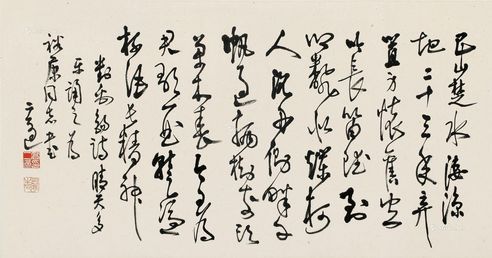 巴山楚水淒涼
地二十三年弃
置身懷舊空
吟聞笛賦到
鄉翻似爛柯
人沉舟側畔千
帆過病樹前頭
萬木春今日
君歌一曲暫憑
杯酒長精神
劉禹錫詩
誦之為
康同志書